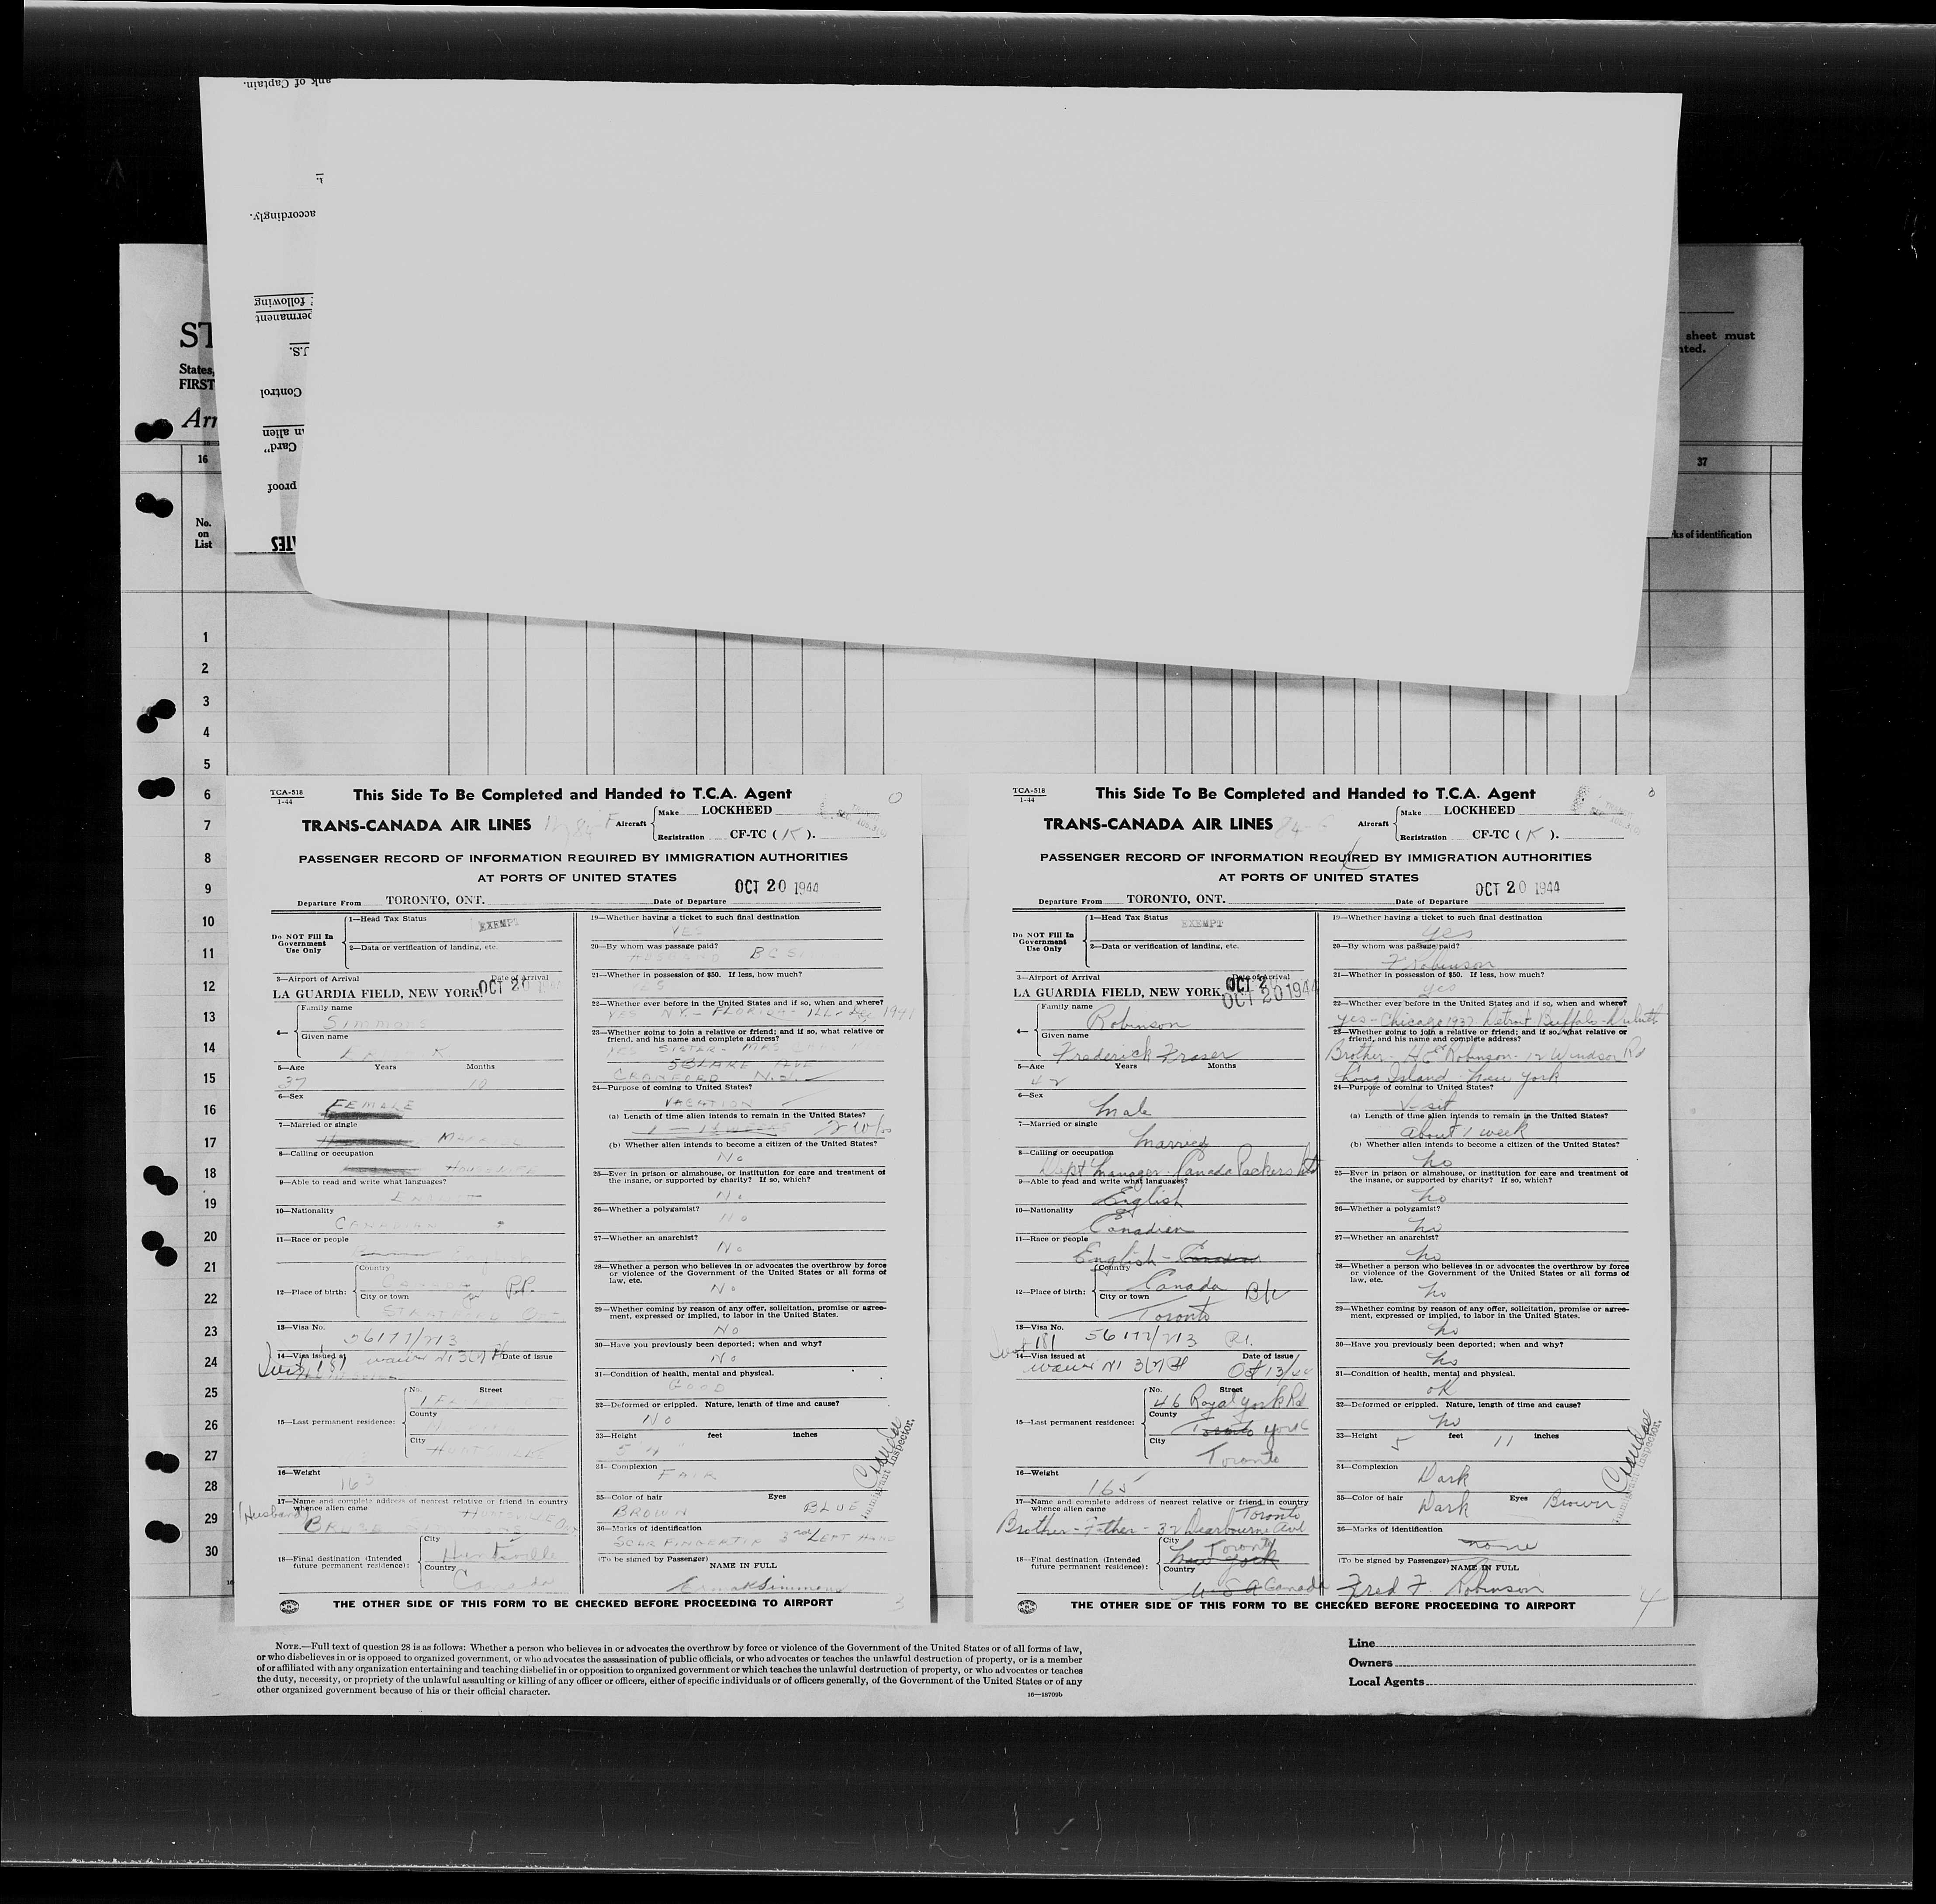 ank of Captain.
accordingly.
following
permanent
U.S.
Control
an alien
Card"
proof
ST
States,
FIRST
Arr
sheet must
nted.
16
37
No.
on
List
ks of identification
1
2
3
4
5
6
7
8
9
10
11
12
13
14
15
16
17
18
19
20
21
22
23
24
25
26
27
28
29
30
TCA-518
1-44
This Side To Be Completed and Handed to T.C.A. Agent
TRANS-CANADA AIR LINES
Aircraft
Make LOCKHEED
Registration CF-TC ( K ).
PASSENGER RECORD OF INFORMATION REQUIRED BY IMMIGRATION AUTHORITIES
AT PORTS OF UNITED STATES
OCT 20 1944
Departure From TORONTO, ONT. Date of Departure
Do NOT Fill In
Government
Use Only
1—Head Tax Status
EXEMPT
2—Data or verification of landing, etc.
3—Airport of Arrival Date of Arrival
LA GUARDIA FIELD, NEW YORK. OCT 20 1944
4— Family name
Simmons
Given name
5—Age Years Months
37 10
6—Sex
FEMALE
7—Married or single
8—Calling or occupation
HOUSEWIFE
9—Able to read and write what languages?
ENGLISH
10—Nationality
CANADIAN
11—Race or people
12—Place of birth:
Country
P.P.
City or town
STRATFORD
13—Visa No.
56177/213
14—Visa issued at Date of issue
waiver N1 3(7)
15—Last permanent residence:
No. Street
County
City
HUNTSVILLE
16—Weight
163
17—Name and complete address of nearest relative or friend in country
whence alien came
(Husband) HUNTSVILLE Ont
BRUCE
18—Final destination (Intended
future permanent residence):
City
Huntsville
Country
Canada
19—Whether having a ticket to such final destination
YES
20—By whom was passage paid?
HUSBAND
21—Whether in possession of $50. If less, how much?
YES
22—Whether ever before in the United States and if so, when and where?
YES N.Y. - FLORIDA - ILL - Dec 1941
23—Whether going to join a relative or friend; and if so, what relative or
friend, and his name and complete address?
YES SISTER - MRS
BLAKE AVE
CRANFORD N.J.
24—Purpose of coming to United States?
VACATION
(a) Length of time alien intends to remain in the United States?
2 wks
(b) Whether alien intends to become a citizen of the United States?
No
25—Ever in prison or almshouse, or institution for care and treatment of
the insane, or supported by charity? If so, which?
No
26—Whether a polygamist?
No
27—Whether an anarchist?
No
28—Whether a person who believes in or advocates the overthrow by force
or violence of the Government of the United States or all forms of
law, etc.
No
29—Whether coming by reason of any offer, solicitation, promise or agree-
ment, expressed or implied, to labor in the United States?
No
30—Have you previously been deported; when and why?
No
31—Condition of health, mental and physical.
GOOD
32—Deformed or crippled. Nature, length of time and cause?
No
33—Height feet inches
5
34—Complexion
FAIR
35—Color of hair Eyes
BROWN BLUE
36—Marks of identification
SCAR FINGERTIP 3rd LEFT HAND
(To be signed by Passenger) NAME IN FULL
Erma K Simmons
Immigrant Inspector.
THE OTHER SIDE OF THIS FORM TO BE CHECKED BEFORE PROCEEDING TO AIRPORT
3
TCA-518
1-44
This Side To Be Completed and Handed to T.C.A. Agent
TRANS-CANADA AIR LINES
Aircraft
Make LOCKHEED
Registration CF-TC ( K ).
PASSENGER RECORD OF INFORMATION REQUIRED BY IMMIGRATION AUTHORITIES
AT PORTS OF UNITED STATES
OCT 20 1944
Departure From TORONTO, ONT. Date of Departure
Do NOT Fill In
Government
Use Only
1—Head Tax Status
EXEMPT
2—Data or verification of landing, etc.
3—Airport of Arrival Date of Arrival
LA GUARDIA FIELD, NEW YORK. OCT 20 1944
4— Family name
Robinson
Given name
Frederick Fraser
5—Age Years Months
42
6—Sex
Male
7—Married or single
Married
8—Calling or occupation
Dept Manager - Canada Packers Ltd
9—Able to read and write what languages?
English
10—Nationality
Canadian
11—Race or people
English - Canadian
12—Place of birth:
Country
Canada
City or town
Toronto
13—Visa No.
56177/213
14—Visa issued at Date of issue
waiver N1 3(7) Oct 13/44
15—Last permanent residence:
No. Street
46 Royal York Rd
County
Toronto York
City
Toronto
16—Weight
165
17—Name and complete address of nearest relative or friend in country
whence alien came
Toronto
Brother - Father - 32 Dearbourne Ave
18—Final destination (Intended
future permanent residence):
City
Toronto
New York
Country
U S A Canada
19—Whether having a ticket to such final destination
Yes
20—By whom was passage paid?
F Robinson
21—Whether in possession of $50. If less, how much?
yes
22—Whether ever before in the United States and if so, when and where?
Yes - Chicago 1937 - Detroit - Buffalo - Duluth
23—Whether going to join a relative or friend; and if so, what relative or
friend, and his name and complete address?
Brother - H E Robinson - 12 Windsor Rd
Long Island - New York
24—Purpose of coming to United States?
Visit
(a) Length of time alien intends to remain in the United States?
About 1 week
(b) Whether alien intends to become a citizen of the United States?
No
25—Ever in prison or almshouse, or institution for care and treatment of
the insane, or supported by charity? If so, which?
No
26—Whether a polygamist?
No
27—Whether an anarchist?
No
28—Whether a person who believes in or advocates the overthrow by force
or violence of the Government of the United States or all forms of
law, etc.
No
29—Whether coming by reason of any offer, solicitation, promise or agree-
ment, expressed or implied, to labor in the United States?
No
30—Have you previously been deported; when and why?
No
31—Condition of health, mental and physical.
OK
32—Deformed or crippled. Nature, length of time and cause?
No
33—Height feet inches
5 11
34—Complexion
Dark
35—Color of hair Eyes
Dark Brown
36—Marks of identification
none
(To be signed by Passenger) NAME IN FULL
Fred F. Robinson
Immigrant Inspector.
THE OTHER SIDE OF THIS FORM TO BE CHECKED BEFORE PROCEEDING TO AIRPORT
4
NOTE.—Full text of question 28 is as follows: Whether a person who believes in or advocates the overthrow by force or violence of the Government of the United States or of all forms of law,
or who disbelieves in or is opposed to organized government, or who advocates the assassination of public officials, or who advocates or teaches the unlawful destruction of property, or is a member
of or affiliated with any organization entertaining and teaching disbelief in or opposition to organized government or which teaches the unlawful destruction of property, or who advocates or teaches
the duty, necessity, or propriety of the unlawful assaulting or killing of any officer or officers, either of specific individuals or of officers generally, of the Government of the United States or of any
other organized government because of his or their official character.
16—18709b
Line
Owners
Local Agents